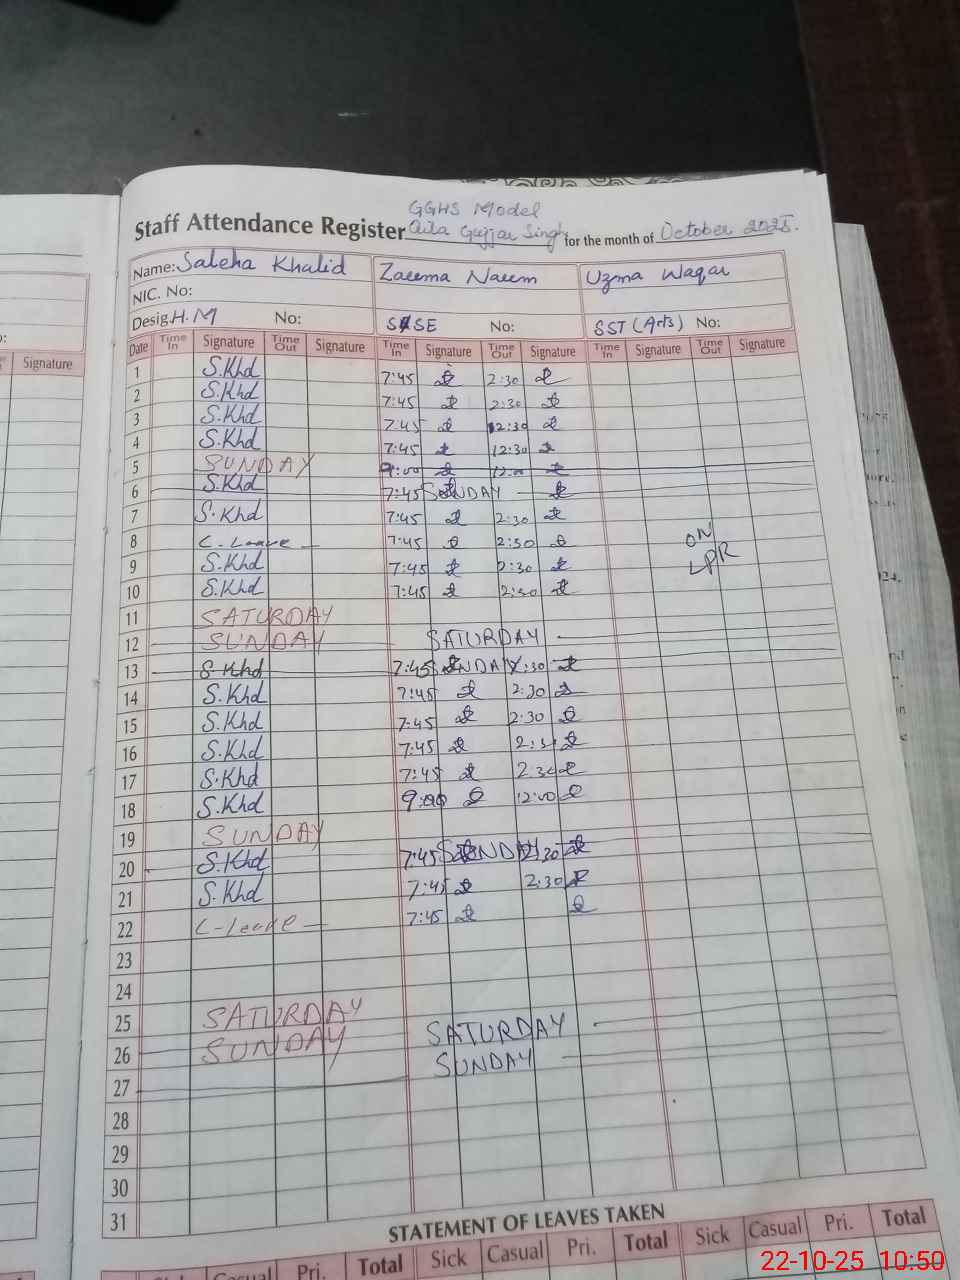 GGHS Model
Staff Attendance Register Qila Gujjar Singh for the month of October 2025.
Name: Saleha Khalid Zaeema Naeem Uzma Waqar
NIC. No:
Desig. H.M No: SSE No: SST (Arts) No:
Date Time In Signature Time Out Signature Time In Signature Time Out Signature Time In Signature Time Out Signature
Signature
1 S.Khd 7:45 2:30
2 S.Khd 7:45 2:30
3 S.Khd 7:45 12:30
4 S.Khd 7:45 12:30
5 SUNDAY 9:00 12:00
6 S.Khd 7:45 SUNDAY
7 S.Khd 7:45 2:30
8 C-Leave 7:45 2:30 ON
9 S.Khd 7:45 2:30 LPR
10 S.Khd 7:45 2:30
11 SATURDAY
12 SUNDAY SATURDAY
13 S.Khd 7:45 SUNDAY 2:30
14 S.Khd 7:45 2:30
15 S.Khd 7:45 2:30
16 S.Khd 7:45 2:3
17 S.Khd 7:45 2:30
18 S.Khd 9:00 12:00
19 SUNDAY
20 S.Khd 7:45 SUNDAY 2:30
21 S.Khd 7:45 2:30
22 C-Leave 7:45
23
24
25 SATURDAY SATURDAY
26 SUNDAY SUNDAY
27
28
29
30
31
STATEMENT OF LEAVES TAKEN
Casual Pri. Total Sick Casual Pri. Total Sick Casual Pri. Total
22-10-25 10:50